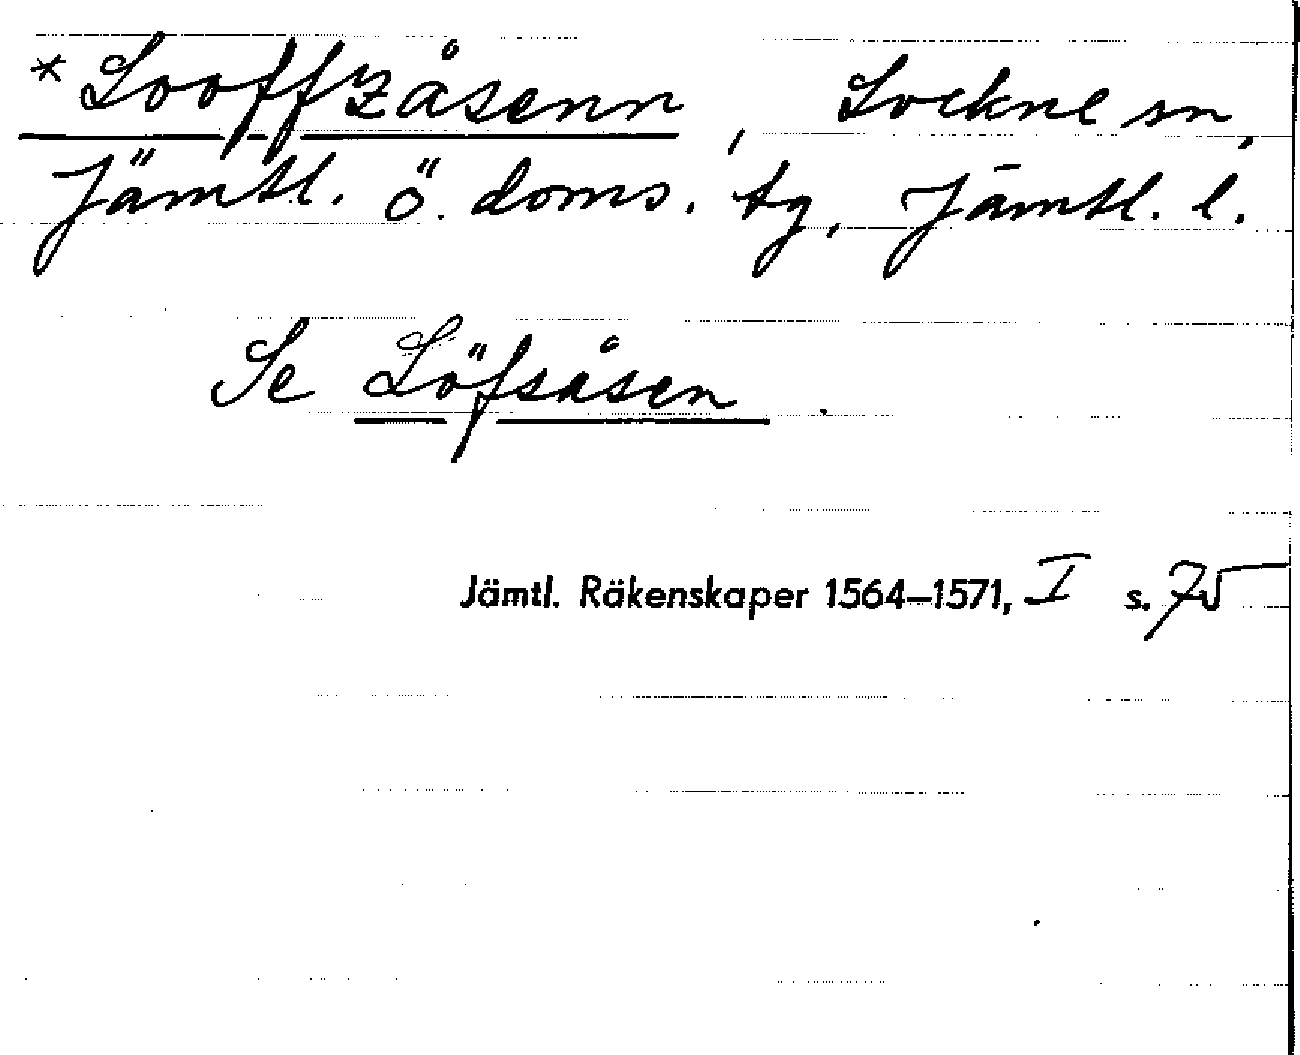 * Looffzåsenn, Lockne sn,
Jämtl. ö. doms. tg, Jämtl. l.
Se Löfsåsen
Jämtl. Räkenskaper 1564–1571, I s. 75